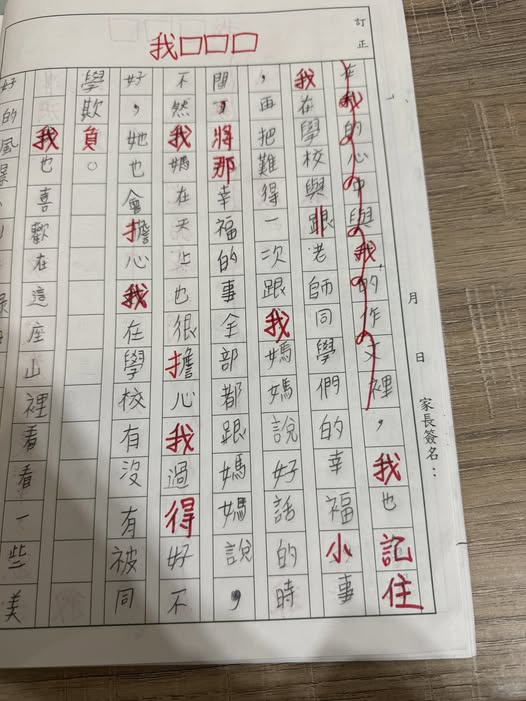 訂正
我□□□
月 日
家長簽名：
在我的心中與我的作文裡，我也記住
我在學校與跟老師同學們的幸福小事
，再把難得一次跟我媽媽說好話的時
間，將那幸福的事全部都跟媽媽說，
不然我媽在天上也很擔心我過得好不
好，她也會擔心我在學校有沒有被同
學欺負。
我也喜歡在這座山裡看看一些美
好的風